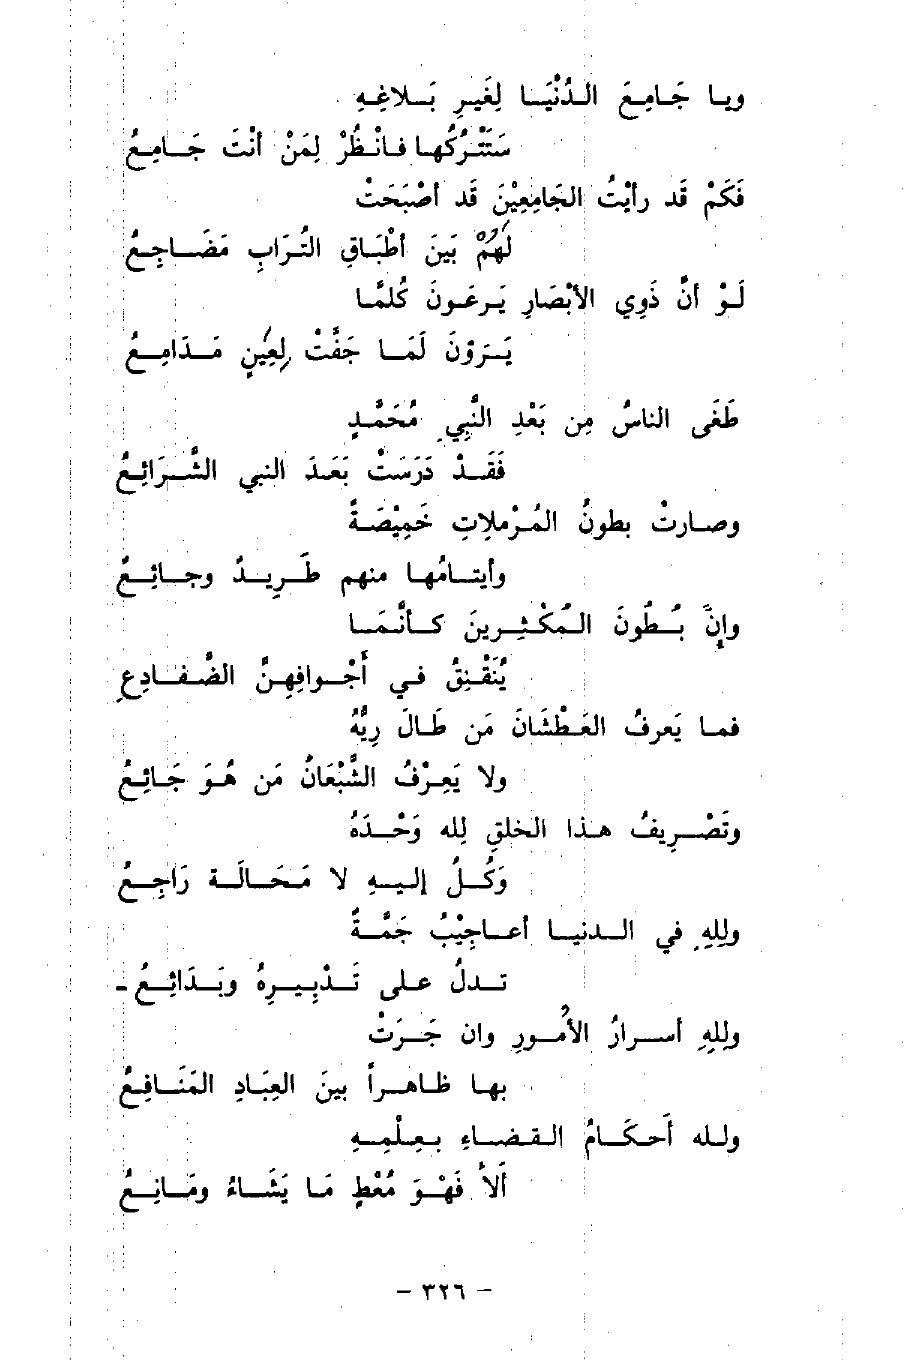 ويا جَامِعَ الدُنْيَا لِغَيرِ بَلاغِهِ
سَتَتْرُكُها فانْظُرْ لِمَنْ أنْتَ جَامِعُ
فَكَمْ قَد رأيْتُ الجَامِعِيْنَ قَد أصْبَحَتْ
لَهُمْ بَينَ أطْبَاقِ التُرَابِ مَضَاجِعُ
لَوْ أنَّ ذَوِي الأبْصَارِ يَرعَونَ كُلَّمَا
يَرَوْنَ لَمَا جَفَّتْ لِعَينٍ مَدَامِعُ
طَغَى الناسُ مِن بَعْدِ النَّبِي مُحَمَّدٍ
فَقَدْ دَرَسَتْ بَعَدَ النبي الشَّرَائِعُ
وصارتْ بطونُ المُرْملاتِ خَمِيْصَةً
وأيتامُها منهم طَرِيدٌ وجائِعُ
وإنَّ بُطُونَ المُكْثِرينَ كأنَّمَا
يُنَقْنِقُ في أَجْوافِهِنَّ الضُفادِعِ
فما يَعرفُ العَطْشَانَ مَن طَالَ رِيُّهُ
ولا يَعِرْفُ الشَّبْعَانُ مَن هُوَ جَائِعُ
وتَصْرِيفُ هذا الخلقِ لِله وَحْدَهُ
وَكُلُ إليهِ لا مَحَالَة رَاجِعُ
ولِلهِ في الدنيا أعاجِيْبُ جَمَّةٌ
تدلُ على تَدْبِيرِهُ وبَدَائِعُ -
ولِلهِ أسرارُ الأمُورِ وان جَرَتْ
بها ظاهراً بينَ العِبَادِ المَنَافِعُ
ولله أَحكَامُ القضاءِ بعِلْمِهِ
أَلاَ فَهْوَ مُعْطٍ مَا يَشَاءُ ومَانِعُ
- ٣٢٦ -